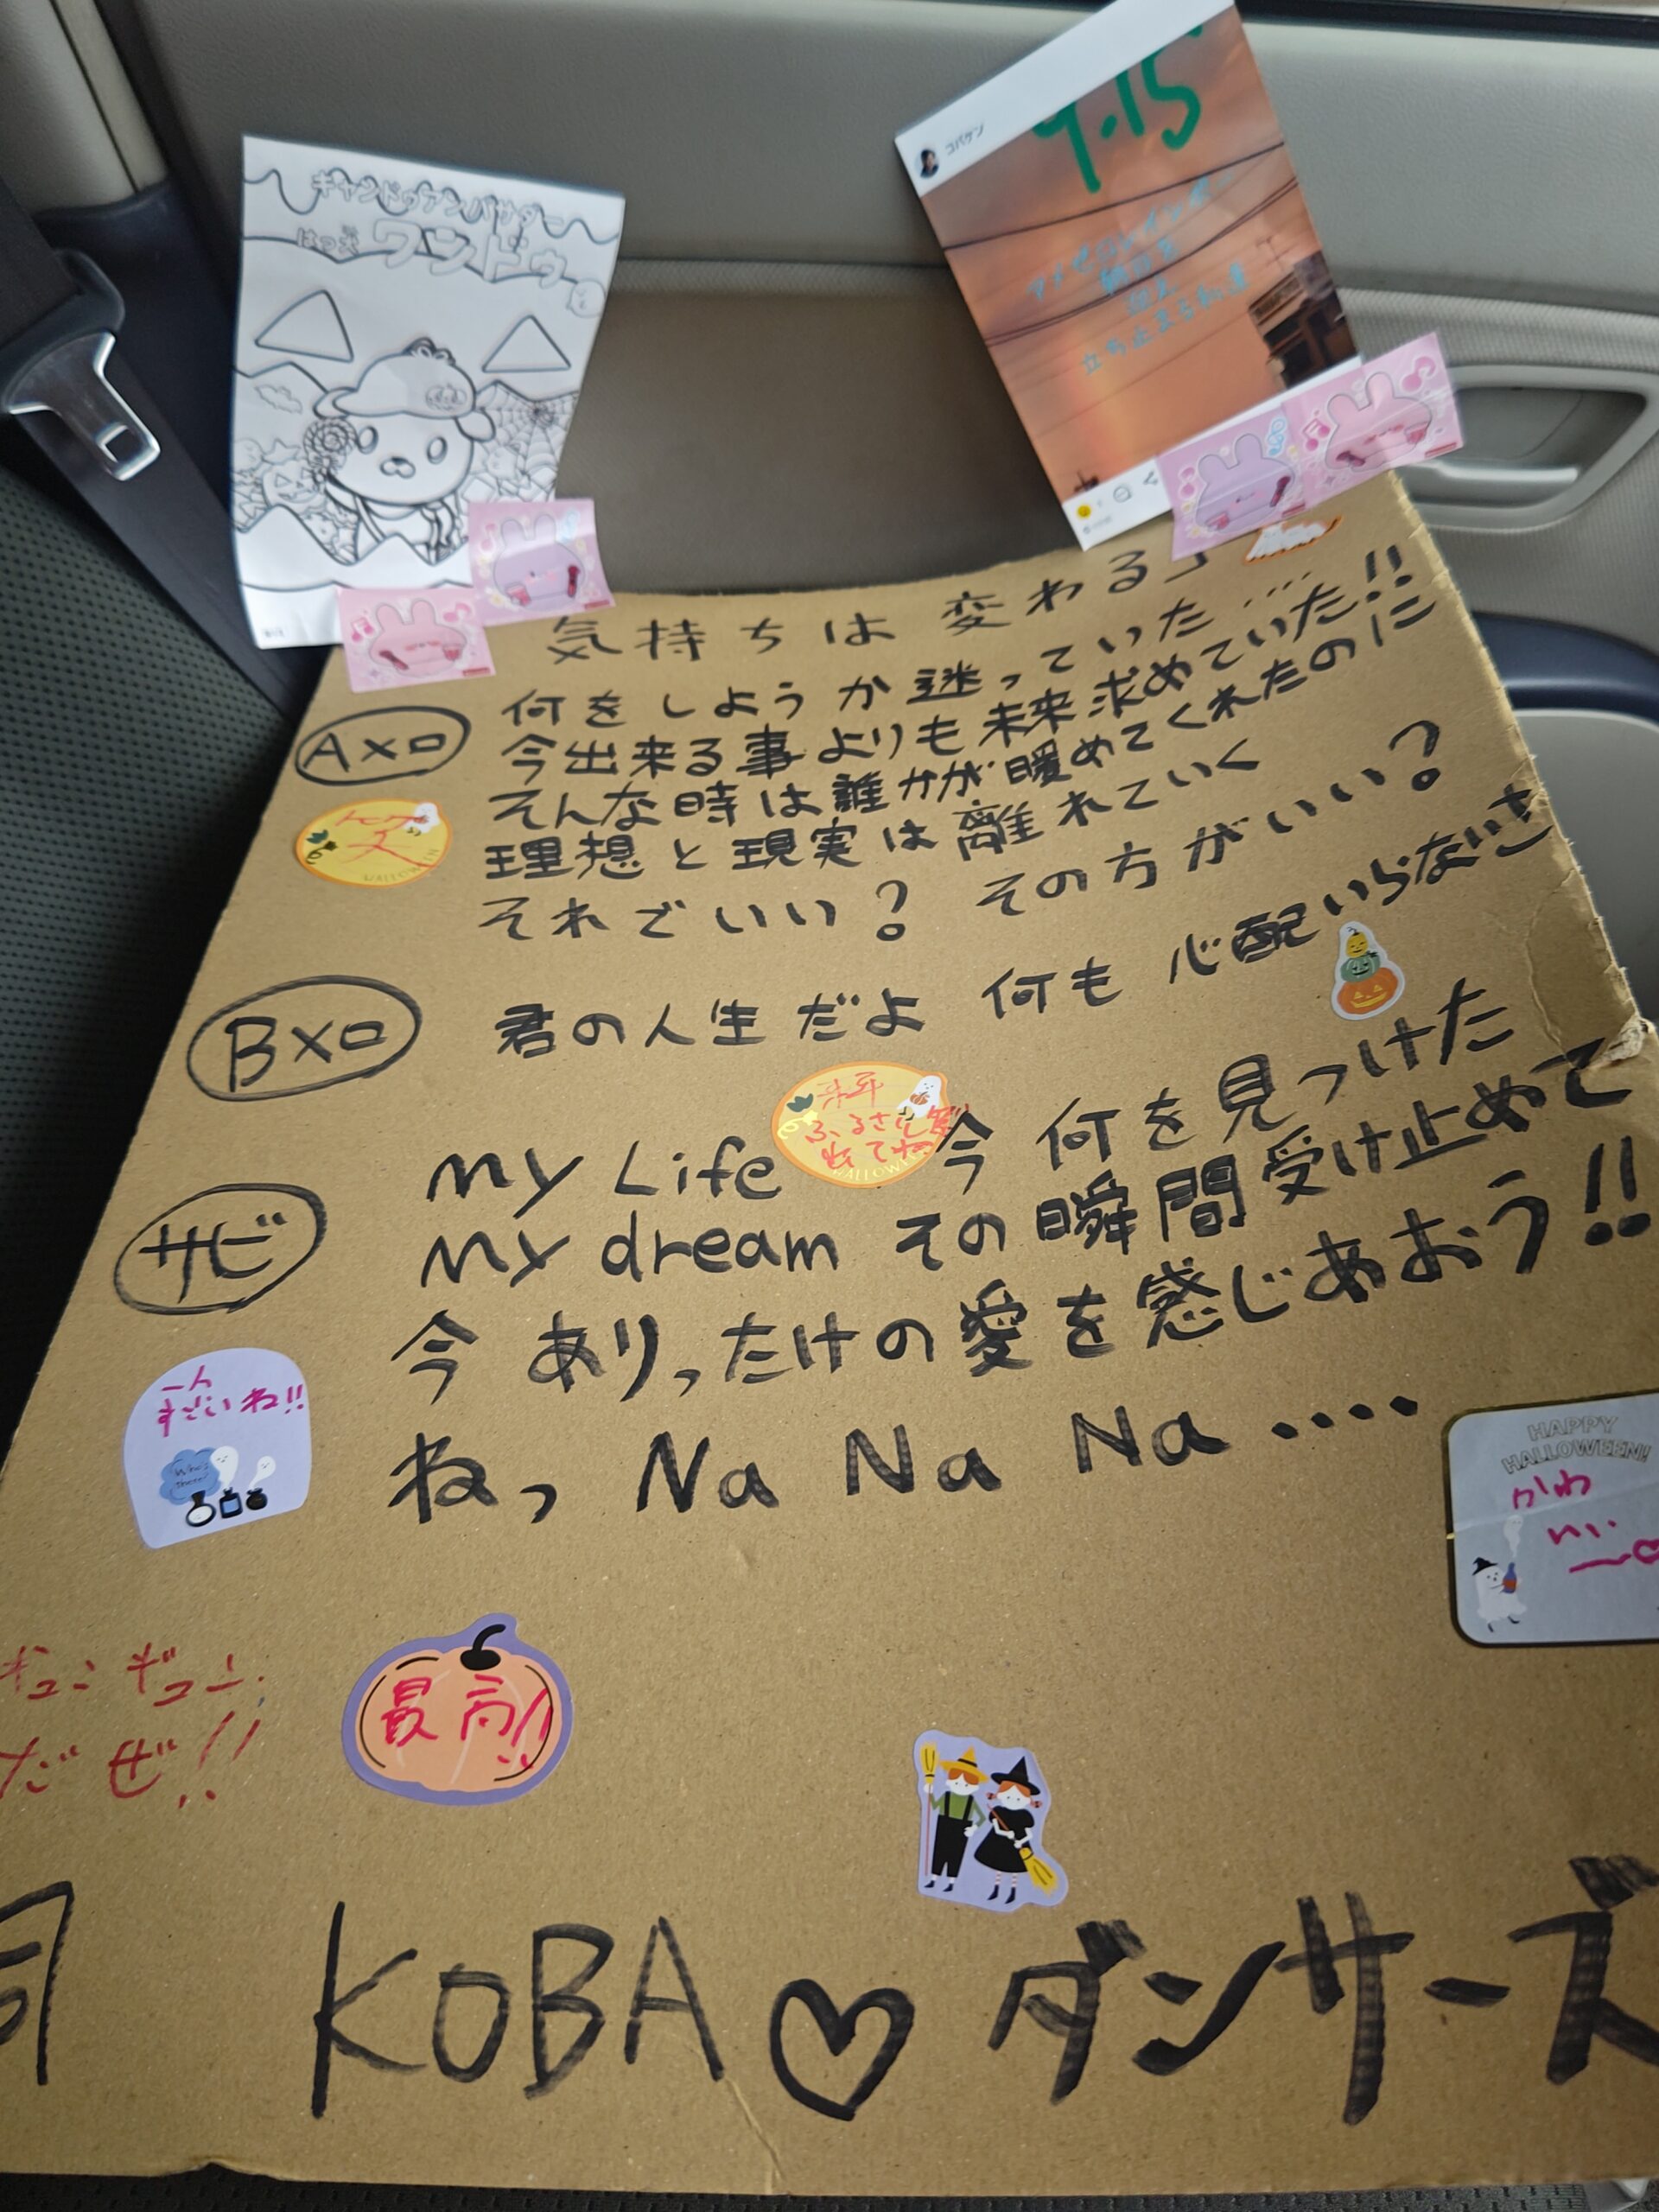 キャンドゥアンバサダー
はっ犬 ワンドゥ
コバケン
9.15
アメゼロレインボー
立ち止まる勇気
気持ちは変わる」
Aメロ
何をしようか迷っていた...
今出来る事よりも未来求めていた!!
そんな時は誰かが暖めてくれたのに
理想と現実は離れていく
それでいい? その方がいい?
Bメロ
君の人生だよ 何も心配いらないさ
来年
ふるさと祭
出てね
HALLOWEEN
サビ
My Life 今 何を見つけた
My dream その瞬間受け止めて
今 ありったけの愛を感じあおう!!
ねっ Na Na Na ....
一人
すごいね!!
Who's there?
HAPPY
HALLOWEEN!
かわ
いい
ギュンギュン
だぜ!!
最高!!
KOBA♡ダンサーズ